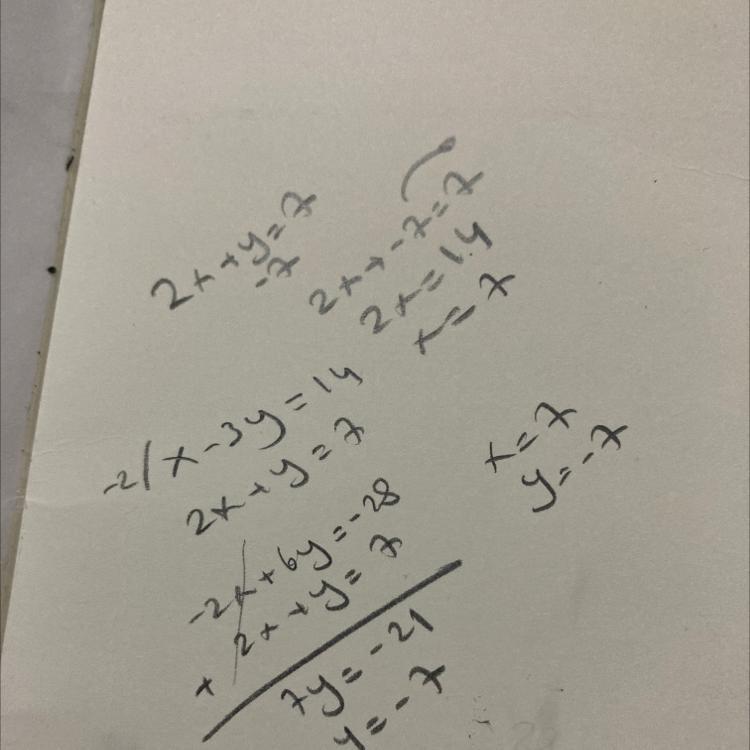 2x+y=7
-7
2x+-7=7
2x=14
x=7
-2/x-3y=14
2x+y=7
-2x+6y=-28
+ 2x+y=7
7y=-21
y=-7
x=7
y=-7